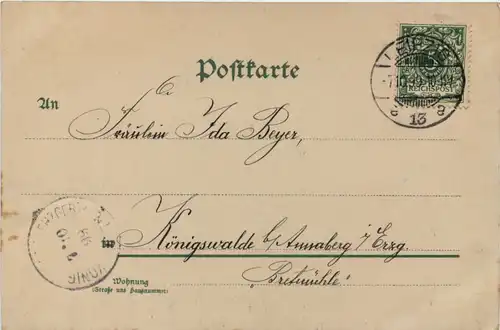 Postkarte
LEIPZIG
REICHSPOST
a 13 a
An
Fräulein Ida Beyer,
in
Königswalde b/Annaberg i/Erzg.
"Bretmühle"
Wohnung
(Straße und Hausnummer)